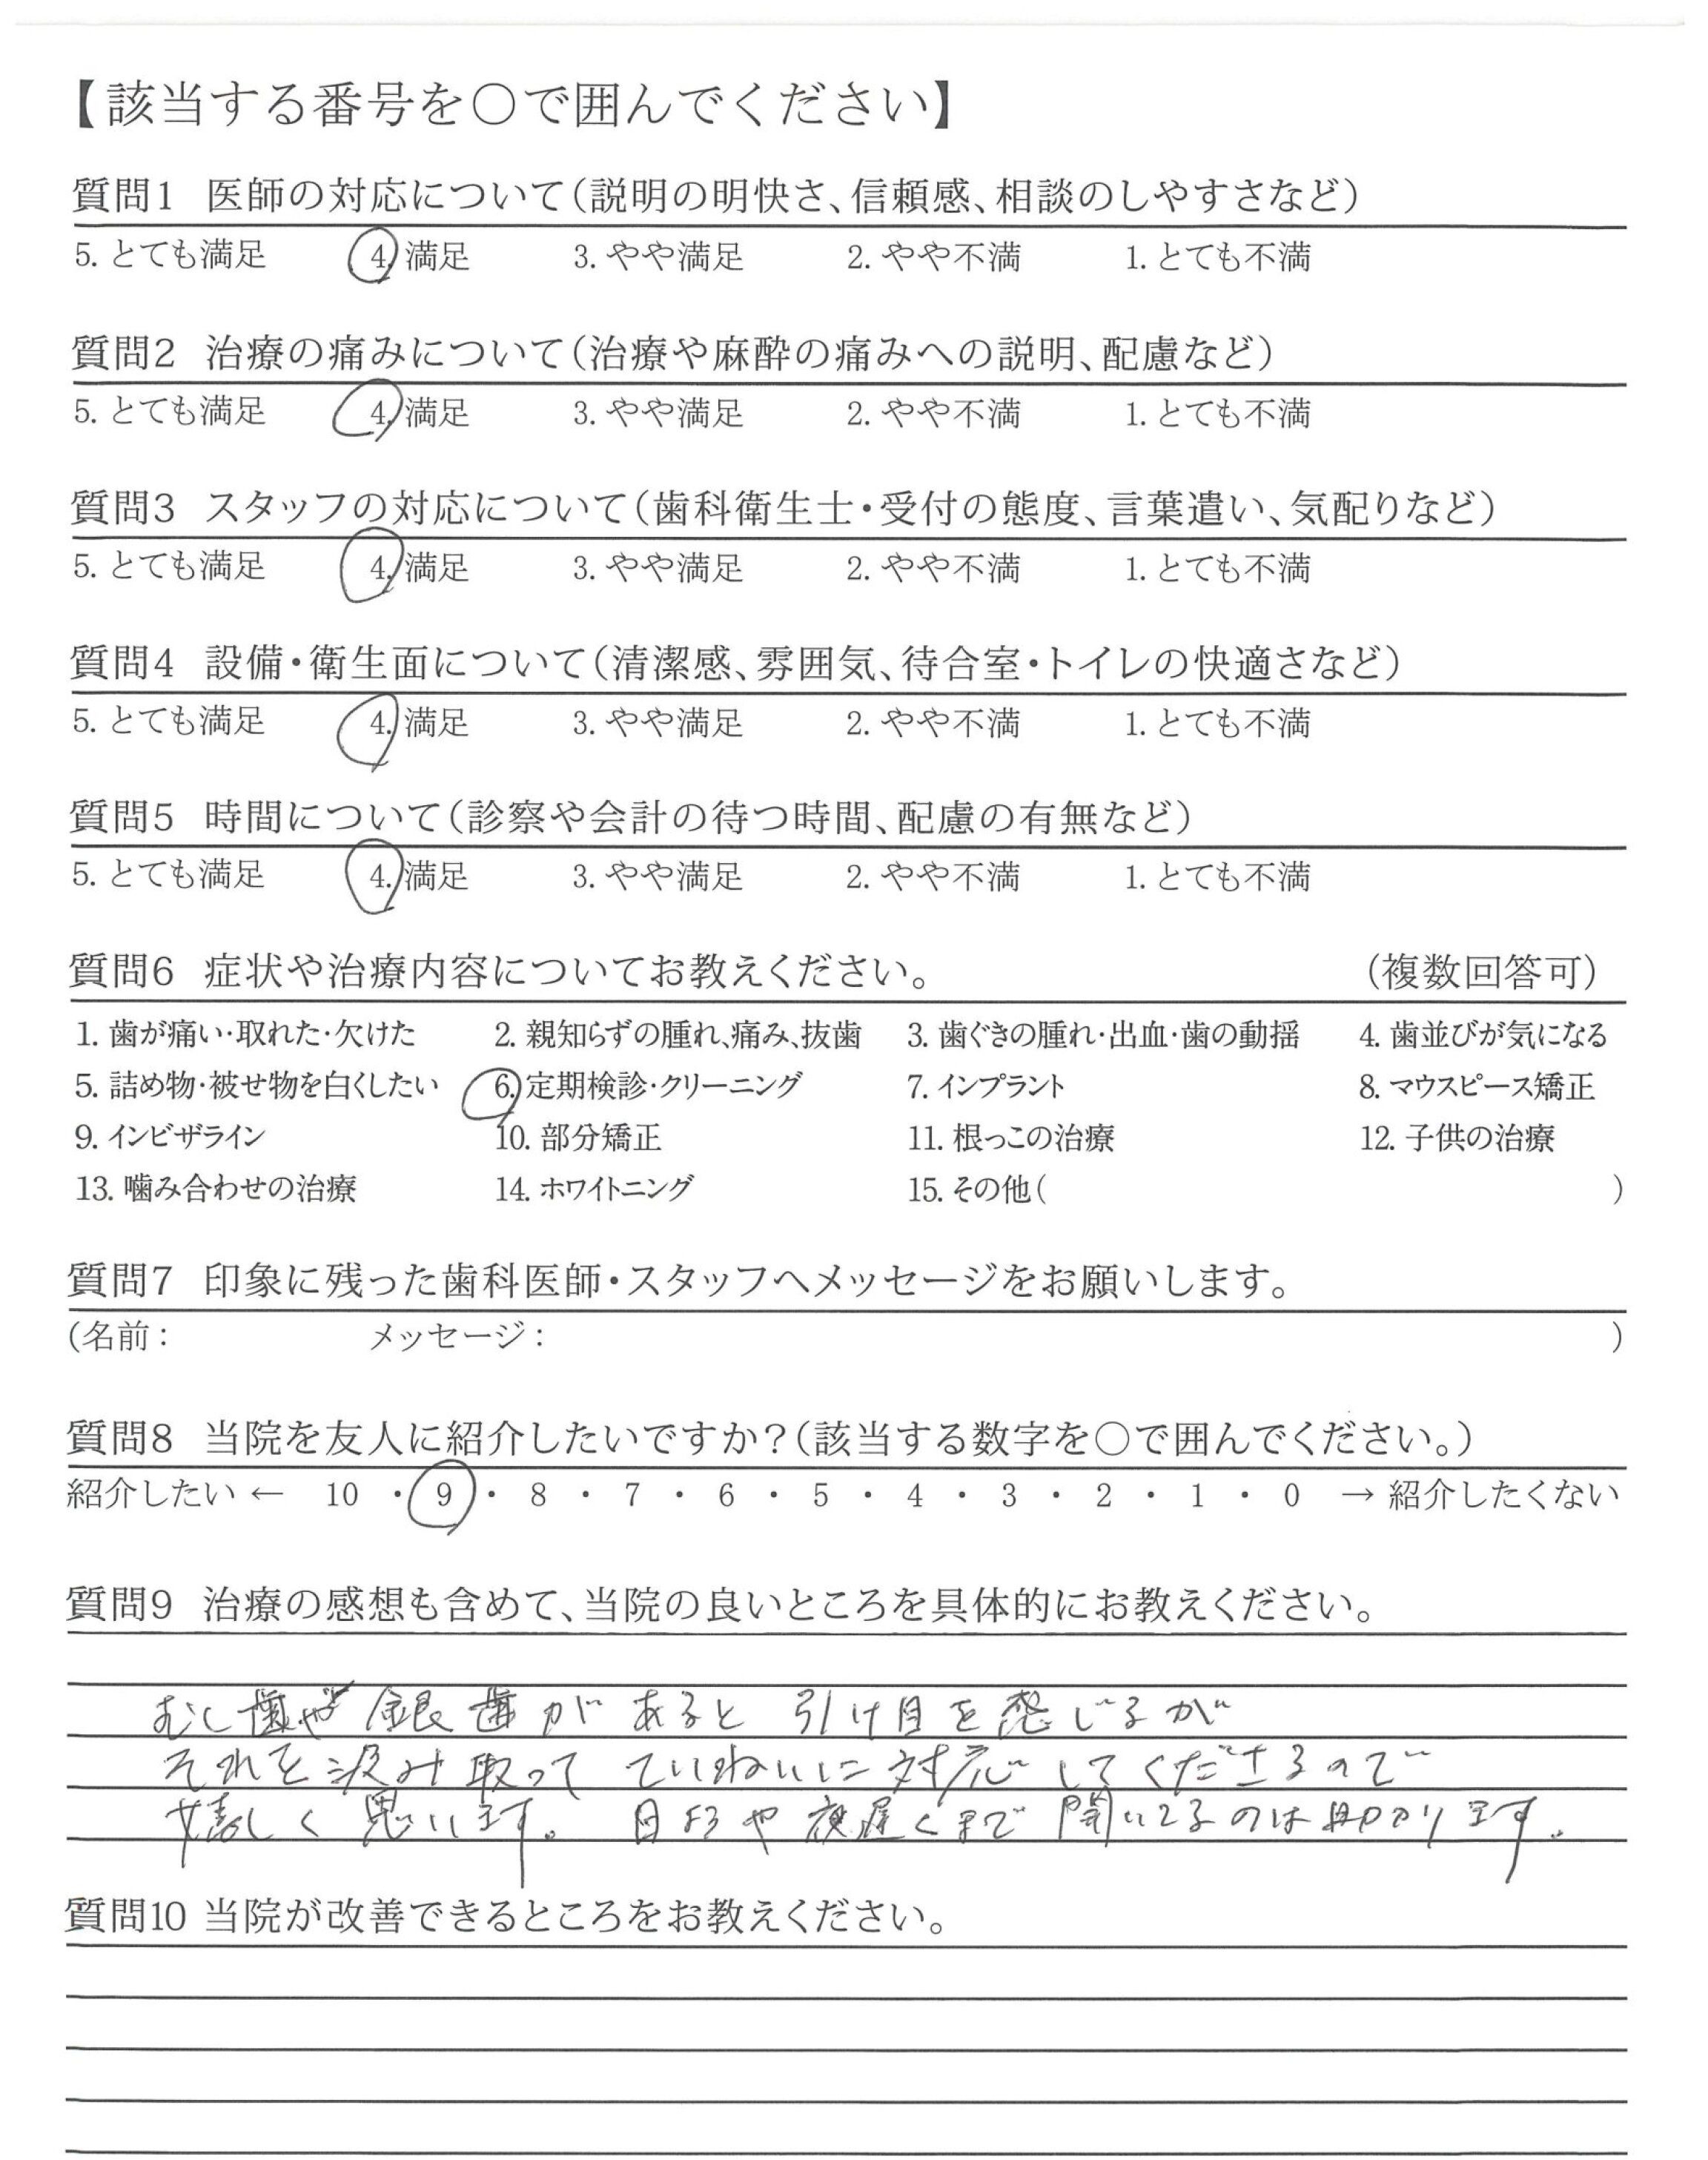 【該当する番号を〇で囲んでください】
質問1 医師の対応について(説明の明快さ、信頼感、相談のしやすさなど)
5. とても満足 4. 満足 3. やや満足 2. やや不満 1. とても不満
質問2 治療の痛みについて(治療や麻酔の痛みへの説明、配慮など)
5. とても満足 4. 満足 3. やや満足 2. やや不満 1. とても不満
質問3 スタッフの対応について(歯科衛生士・受付の態度、言葉遣い、気配りなど)
5. とても満足 4. 満足 3. やや満足 2. やや不満 1. とても不満
質問4 設備・衛生面について(清潔感、雰囲気、待合室・トイレの快適さなど)
5. とても満足 4. 満足 3. やや満足 2. やや不満 1. とても不満
質問5 時間について(診察や会計の待つ時間、配慮の有無など)
5. とても満足 4. 満足 3. やや満足 2. やや不満 1. とても不満
質問6 症状や治療内容についてお教えください。 (複数回答可)
1. 歯が痛い・取れた・欠けた 2. 親知らずの腫れ、痛み、抜歯 3. 歯ぐきの腫れ・出血・歯の動揺 4. 歯並びが気になる
5. 詰め物・被せ物を白くしたい 6. 定期検診・クリーニング 7. インプラント 8. マウスピース矯正
9. インビザライン 10. 部分矯正 11. 根っこの治療 12. 子供の治療
13. 噛み合わせの治療 14. ホワイトニング 15. その他( )
質問7 印象に残った歯科医師・スタッフへメッセージをお願いします。
(名前: メッセージ: )
質問8 当院を友人に紹介したいですか?(該当する数字を〇で囲んでください。)
紹介したい ← 10 ・ 9 ・ 8 ・ 7 ・ 6 ・ 5 ・ 4 ・ 3 ・ 2 ・ 1 ・ 0 → 紹介したくない
質問9 治療の感想も含めて、当院の良いところを具体的にお教えください。
むし歯や銀歯があると引け目を感じるが
それを汲み取ってていねいに対応してくださるので
嬉しく思います。 日よるや夜遅くまで開いてるのは助かります。
質問10 当院が改善できるところをお教えください。